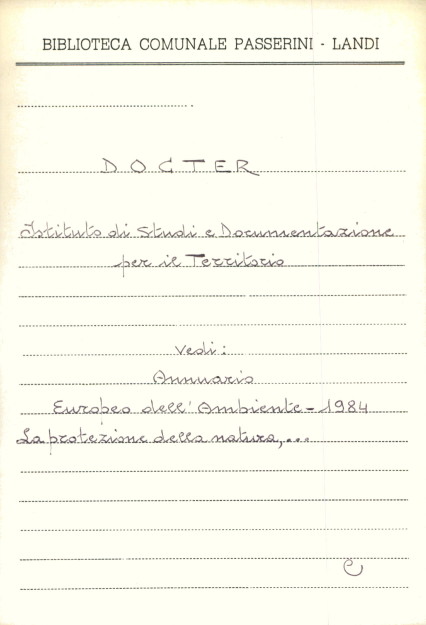 BIBLIOTECA COMUNALE PASSERINI - LANDI
DOCTER
Istituto di Studi e Documentazione
per il Territorio
vedi:
Annuario
Europeo dell'Ambiente - 1984
La protezione della natura,...
e